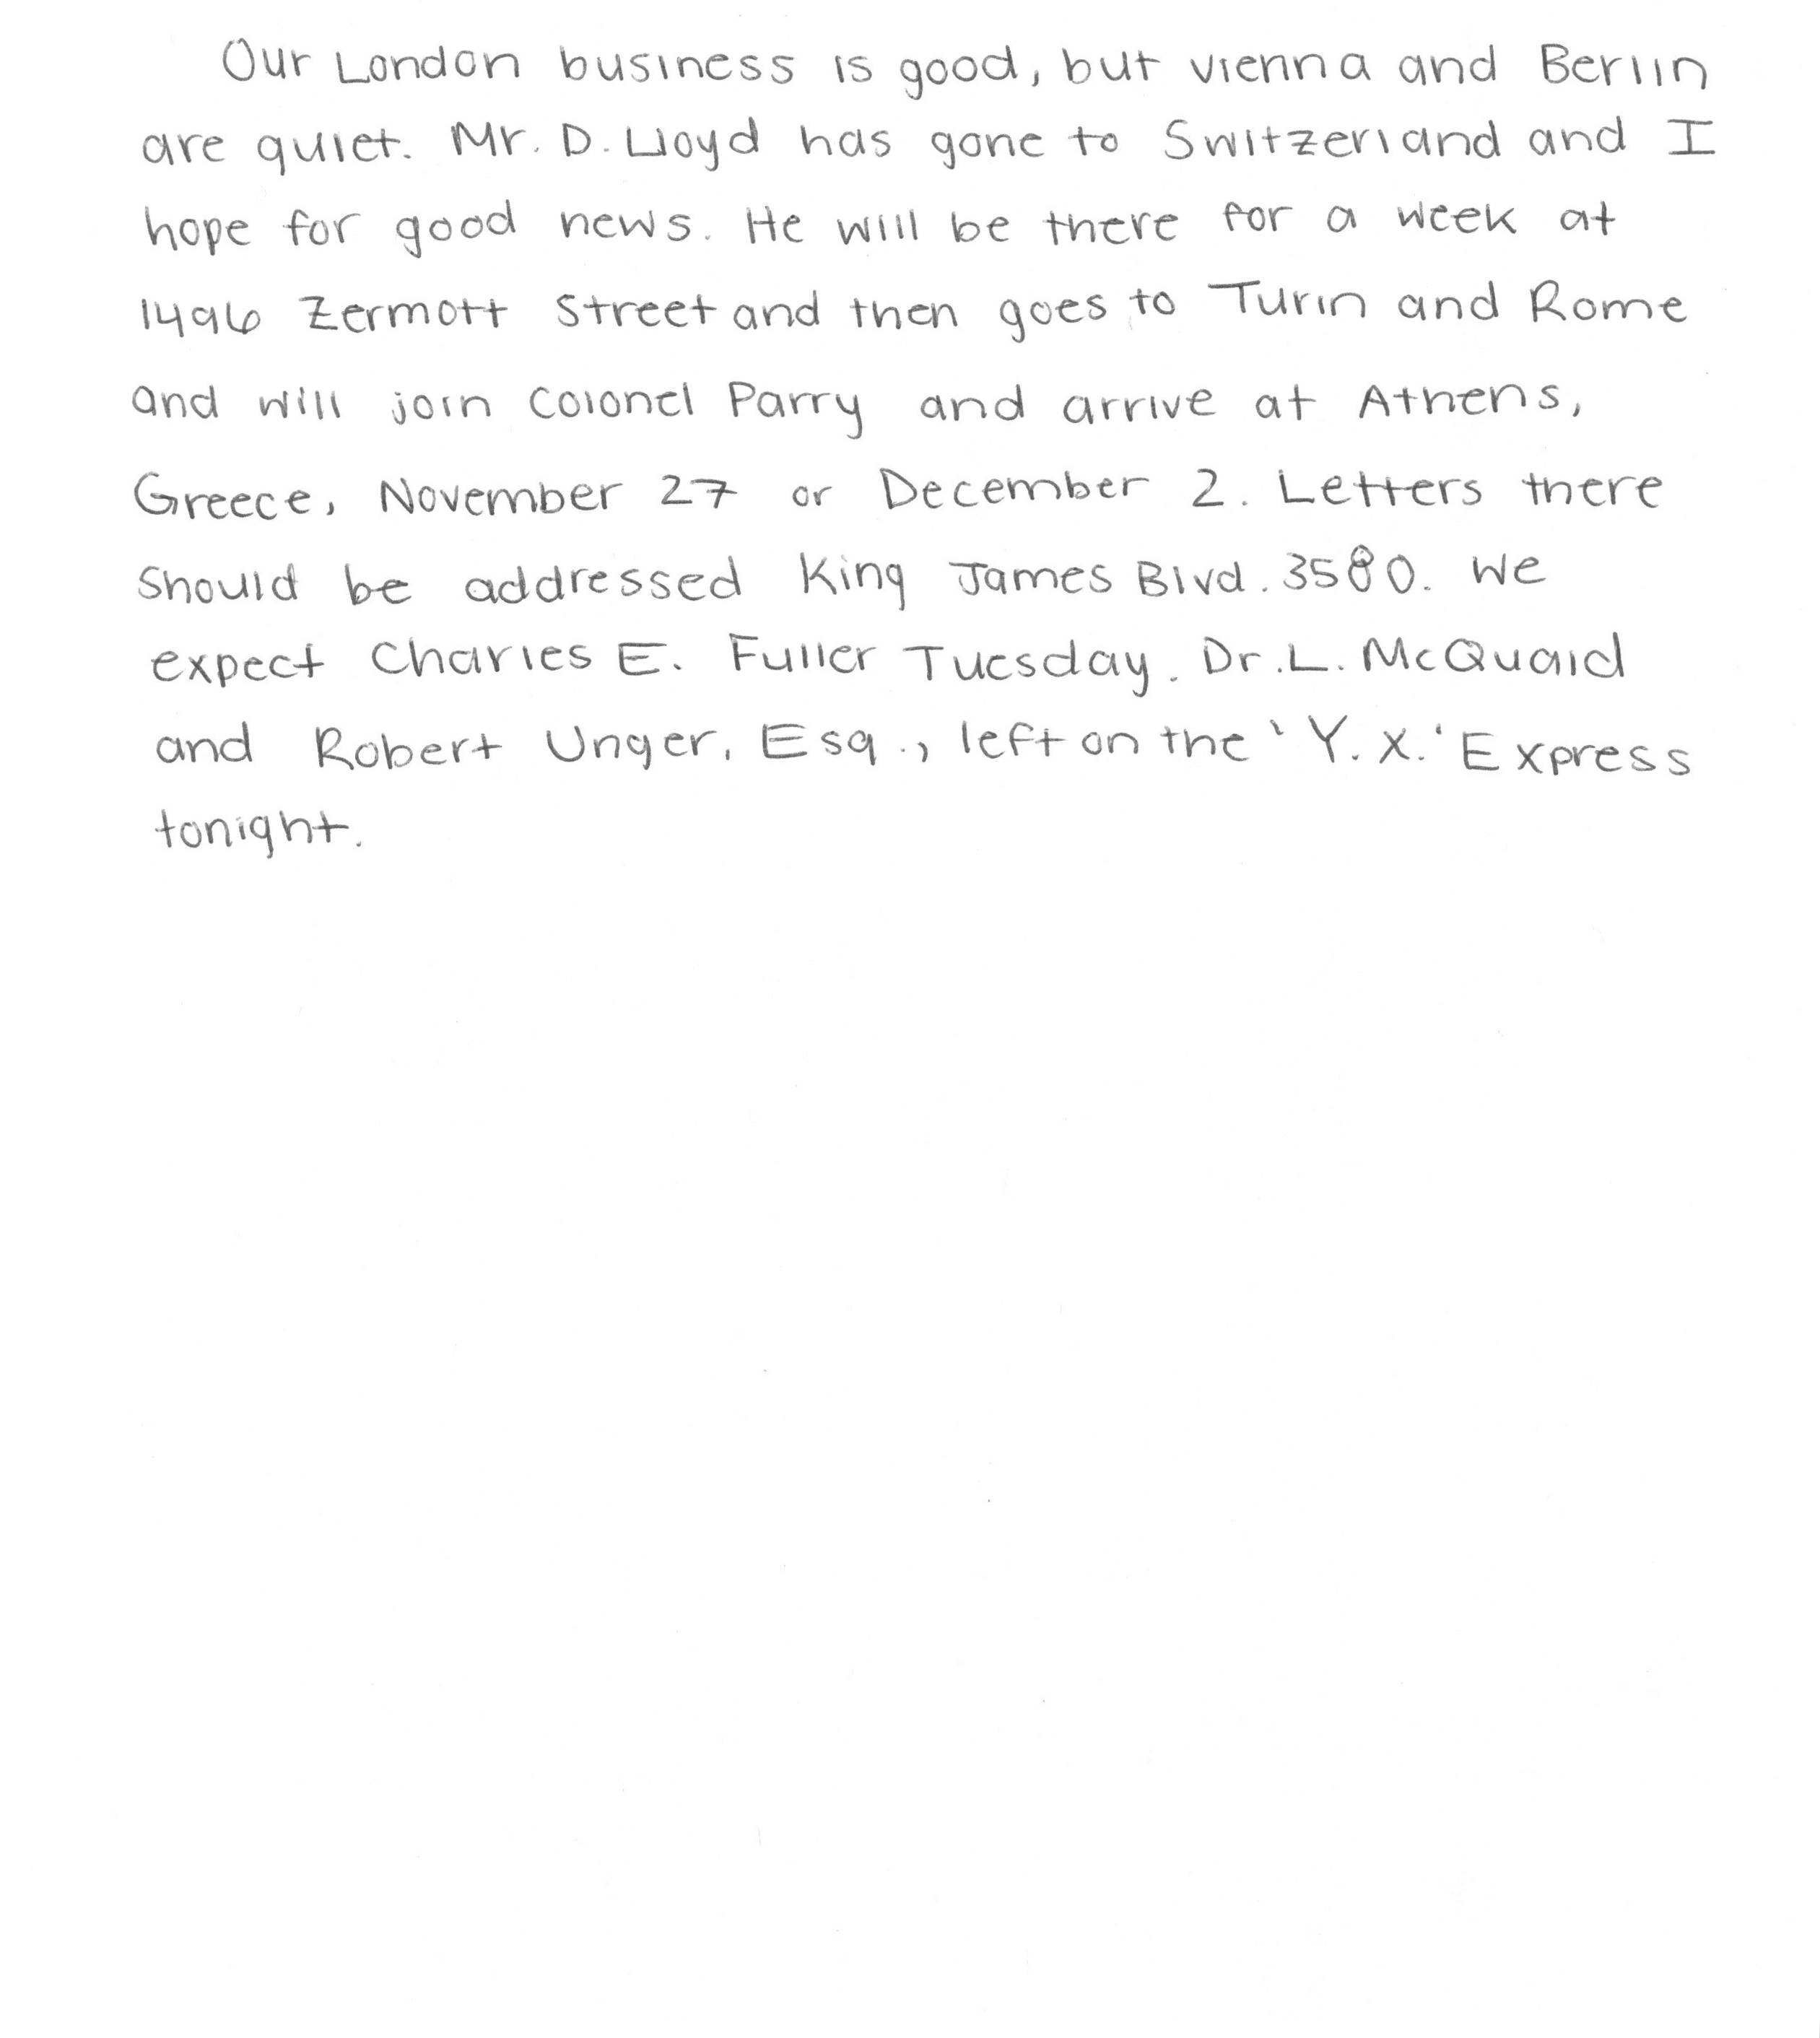 Our London business is good, but vienna and Berlin
are quiet. Mr. D. Lloyd has gone to Switzerland and I
hope for good news. He will be there for a week at
1496 Zermott Street and then goes to Turin and Rome
and will join Colonel Parry and arrive at Athens,
Greece, November 27 or December 2. Letters there
should be addressed King James Blvd. 3580. We
expect Charles E. Fuller Tuesday. Dr. L. McQuaid
and Robert Unger, Esq., left on the 'Y. X.' Express
tonight.